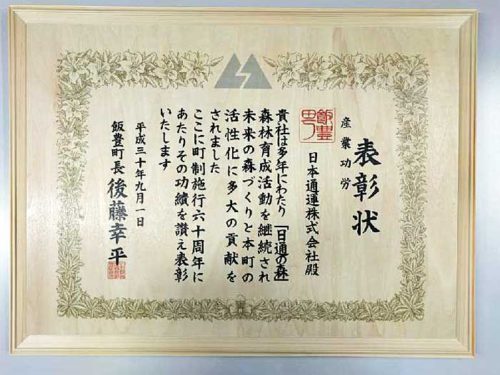 表彰状
産業功労
日本通運株式会社殿
貴社は多年にわたり「日通の森」
森林育成活動を継続され
未来の森づくりと本町の
活性化に多大の貢献を
されました
ここに町制施行六十周年に
あたりその功績を讃え表彰
いたします
平成三十年九月一日
飯豊町長 後藤幸平